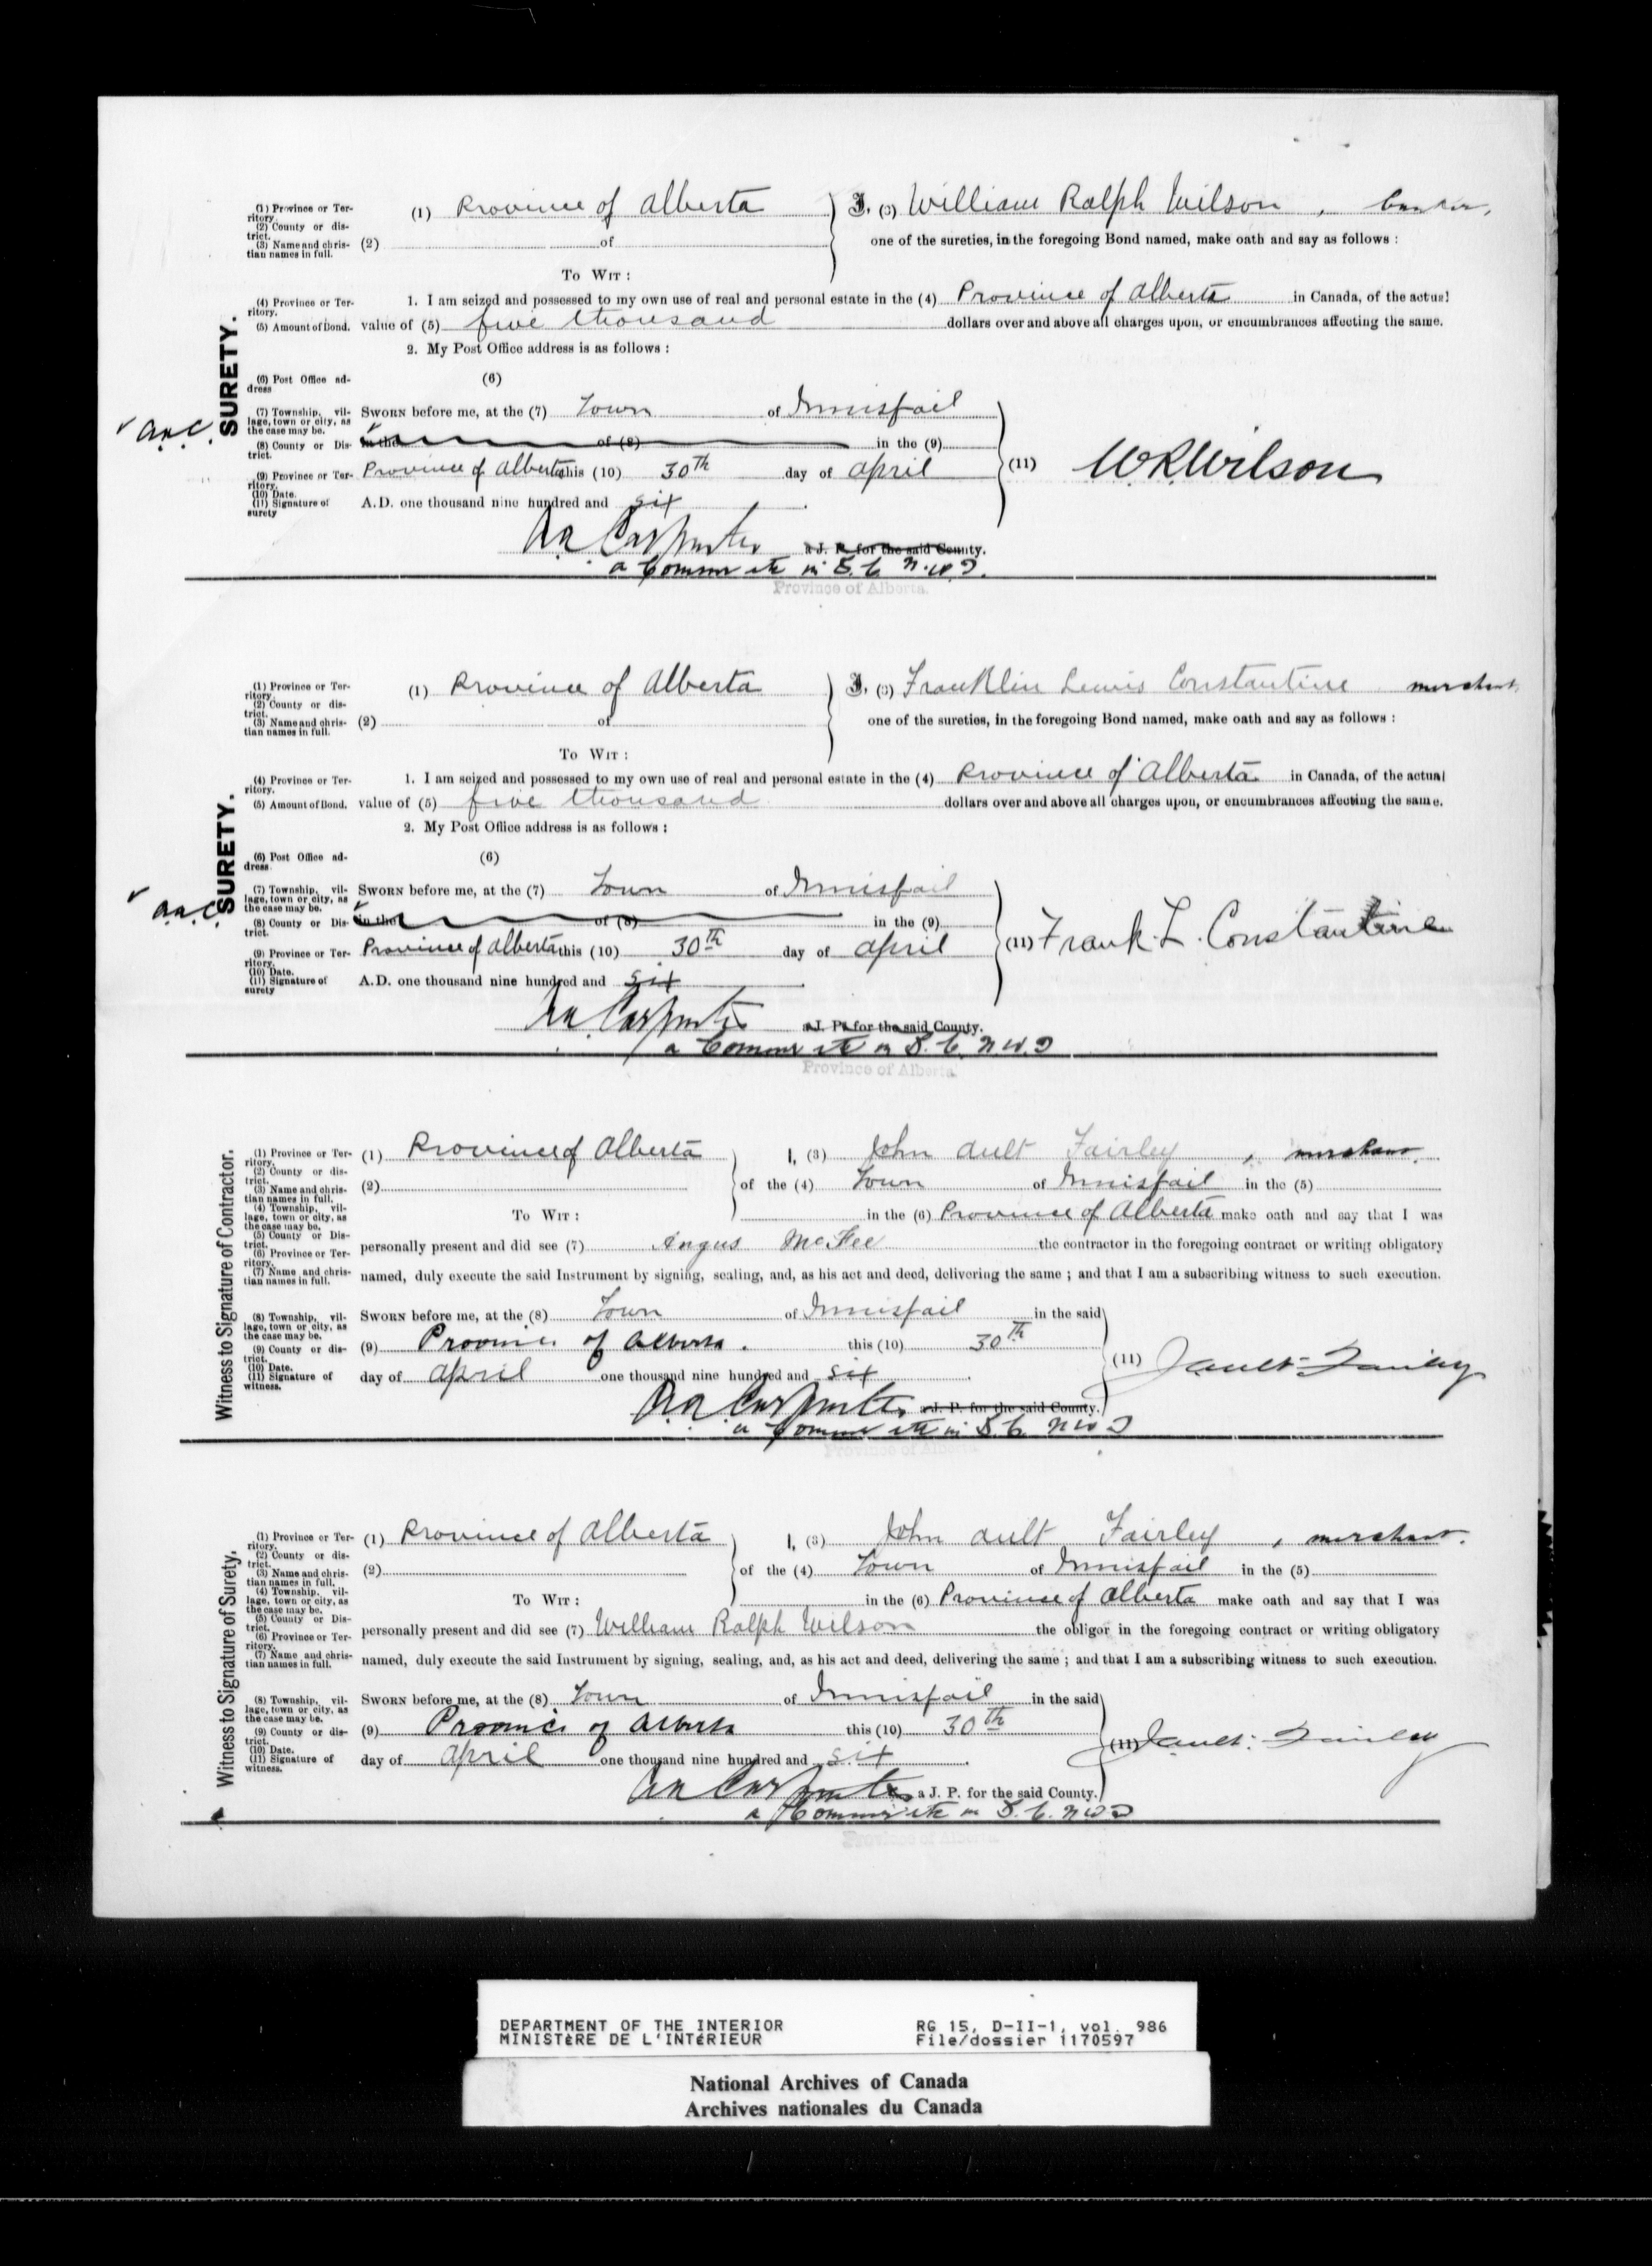 (1) Province or Territory.
(2) County or district.
(3) Name and christian names in full.
(1) Province of Alberta
I, (3) William Ralph Wilson, banker,
(2) of
one of the sureties, in the foregoing Bond named, make oath and say as follows :
TO WIT :
SURETY.
(4) Province or Territory.
(5) Amount of Bond.
1. I am seized and possessed to my own use of real and personal estate in the (4) Province of Alberta in Canada, of the actual
value of (5) five thousand dollars over and above all charges upon, or encumbrances affecting the same.
2. My Post Office address is as follows :
(6) Post Office address
(6)
(7) Township, village, town or city, as the case may be.
(8) County or District.
(9) Province or Territory.
(10) Date.
(11) Signature of surety
a.a.C.
SWORN before me, at the (7) Town of Innisfail
in the of (8) in the (9)
Province of Alberta this (10) 30th day of April
(11) W.R.Wilson
A.D. one thousand nine hundred and six
A.A. Carpenter a J. P. for the said County.
a Commr etc in S.C. N.W.T.
Province of Alberta.
(1) Province or Territory.
(2) County or district.
(3) Name and christian names in full.
(1) Province of Alberta
I, (3) Franklin Lewis Constantine merchant,
(2) of
one of the sureties, in the foregoing Bond named, make oath and say as follows :
TO WIT :
SURETY.
(4) Province or Territory.
(5) Amount of Bond.
1. I am seized and possessed to my own use of real and personal estate in the (4) Province of Alberta in Canada, of the actual
value of (5) five thousand dollars over and above all charges upon, or encumbrances affecting the same.
2. My Post Office address is as follows :
(6) Post Office address.
(6)
(7) Township, village, town or city, as the case may be.
(8) County or District.
(9) Province or Territory.
(10) Date.
(11) Signature of surety
a.a.C.
SWORN before me, at the (7) Town of Innisfail
in the of (8) in the (9)
Province of Alberta this (10) 30th day of April
(11) Frank. L. Constantine
A.D. one thousand nine hundred and six
A.A. Carpenter a J. P. for the said County.
a Commr etc in S.C. N.W.T
Province of Alberta.
Witness to Signature of Contractor.
(1) Province or Territory.
(2) County or district.
(3) Name and christian names in full.
(4) Township, village, town or city, as the case may be.
(5) County or District.
(6) Province or Territory.
(7) Name and christian names in full.
(1) Province of Alberta
I, (3) John Ault Fairley, merchant.
(2)
of the (4) Town of Innisfail in the (5)
TO WIT :
in the (6) Province of Alberta make oath and say that I was
personally present and did see (7) Angus McFee the contractor in the foregoing contract or writing obligatory
named, duly execute the said Instrument by signing, sealing, and, as his act and deed, delivering the same ; and that I am a subscribing witness to such execution.
(8) Township, village, town or city, as the case may be.
(9) County or district.
(10) Date.
(11) Signature of witness.
SWORN before me, at the (8) Town of Innisfail in the said
(9) Province of Alberta. this (10) 30th
(11) J Ault Fairley
day of April one thousand nine hundred and six
A.A. Carpenter a J. P. for the said County.
a Commr etc in S.C. N W T
Province of Alberta
Witness to Signature of Surety.
(1) Province or Territory.
(2) County or district.
(3) Name and christian names in full.
(4) Township, village, town or city, as the case may be.
(5) County or District.
(6) Province or Territory.
(7) Name and christian names in full.
(1) Province of Alberta
I, (3) John Ault Fairley, merchant.
(2)
of the (4) Town of Innisfail in the (5)
TO WIT :
in the (6) Province of Alberta make oath and say that I was
personally present and did see (7) William Ralph Wilson the obligor in the foregoing contract or writing obligatory
named, duly execute the said Instrument by signing, sealing, and, as his act and deed, delivering the same ; and that I am a subscribing witness to such execution.
(8) Township, village, town or city, as the case may be.
(9) County or district.
(10) Date.
(11) Signature of witness.
SWORN before me, at the (8) Town of Innisfail in the said
(9) Province of Alberta this (10) 30th
(11) J Ault Fairley
day of April one thousand nine hundred and six
A A Carpenter a J. P. for the said County.
a Commr etc in S.C. N W T
Province of Alberta
DEPARTMENT OF THE INTERIOR RG 15, D-II-1, vol. 986
MINISTÈRE DE L'INTÉRIEUR File/dossier 1170597
National Archives of Canada
Archives nationales du Canada